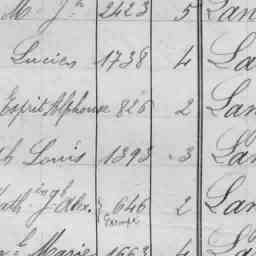 M. Jn 2423 5 Lan
Lucien 1738 4 La
Esprit Alphonse 826 2 Lan
Louis 1393 3 Lan
Alex. 646 2 Lan
Exempt
Marie 1663 4 Lan